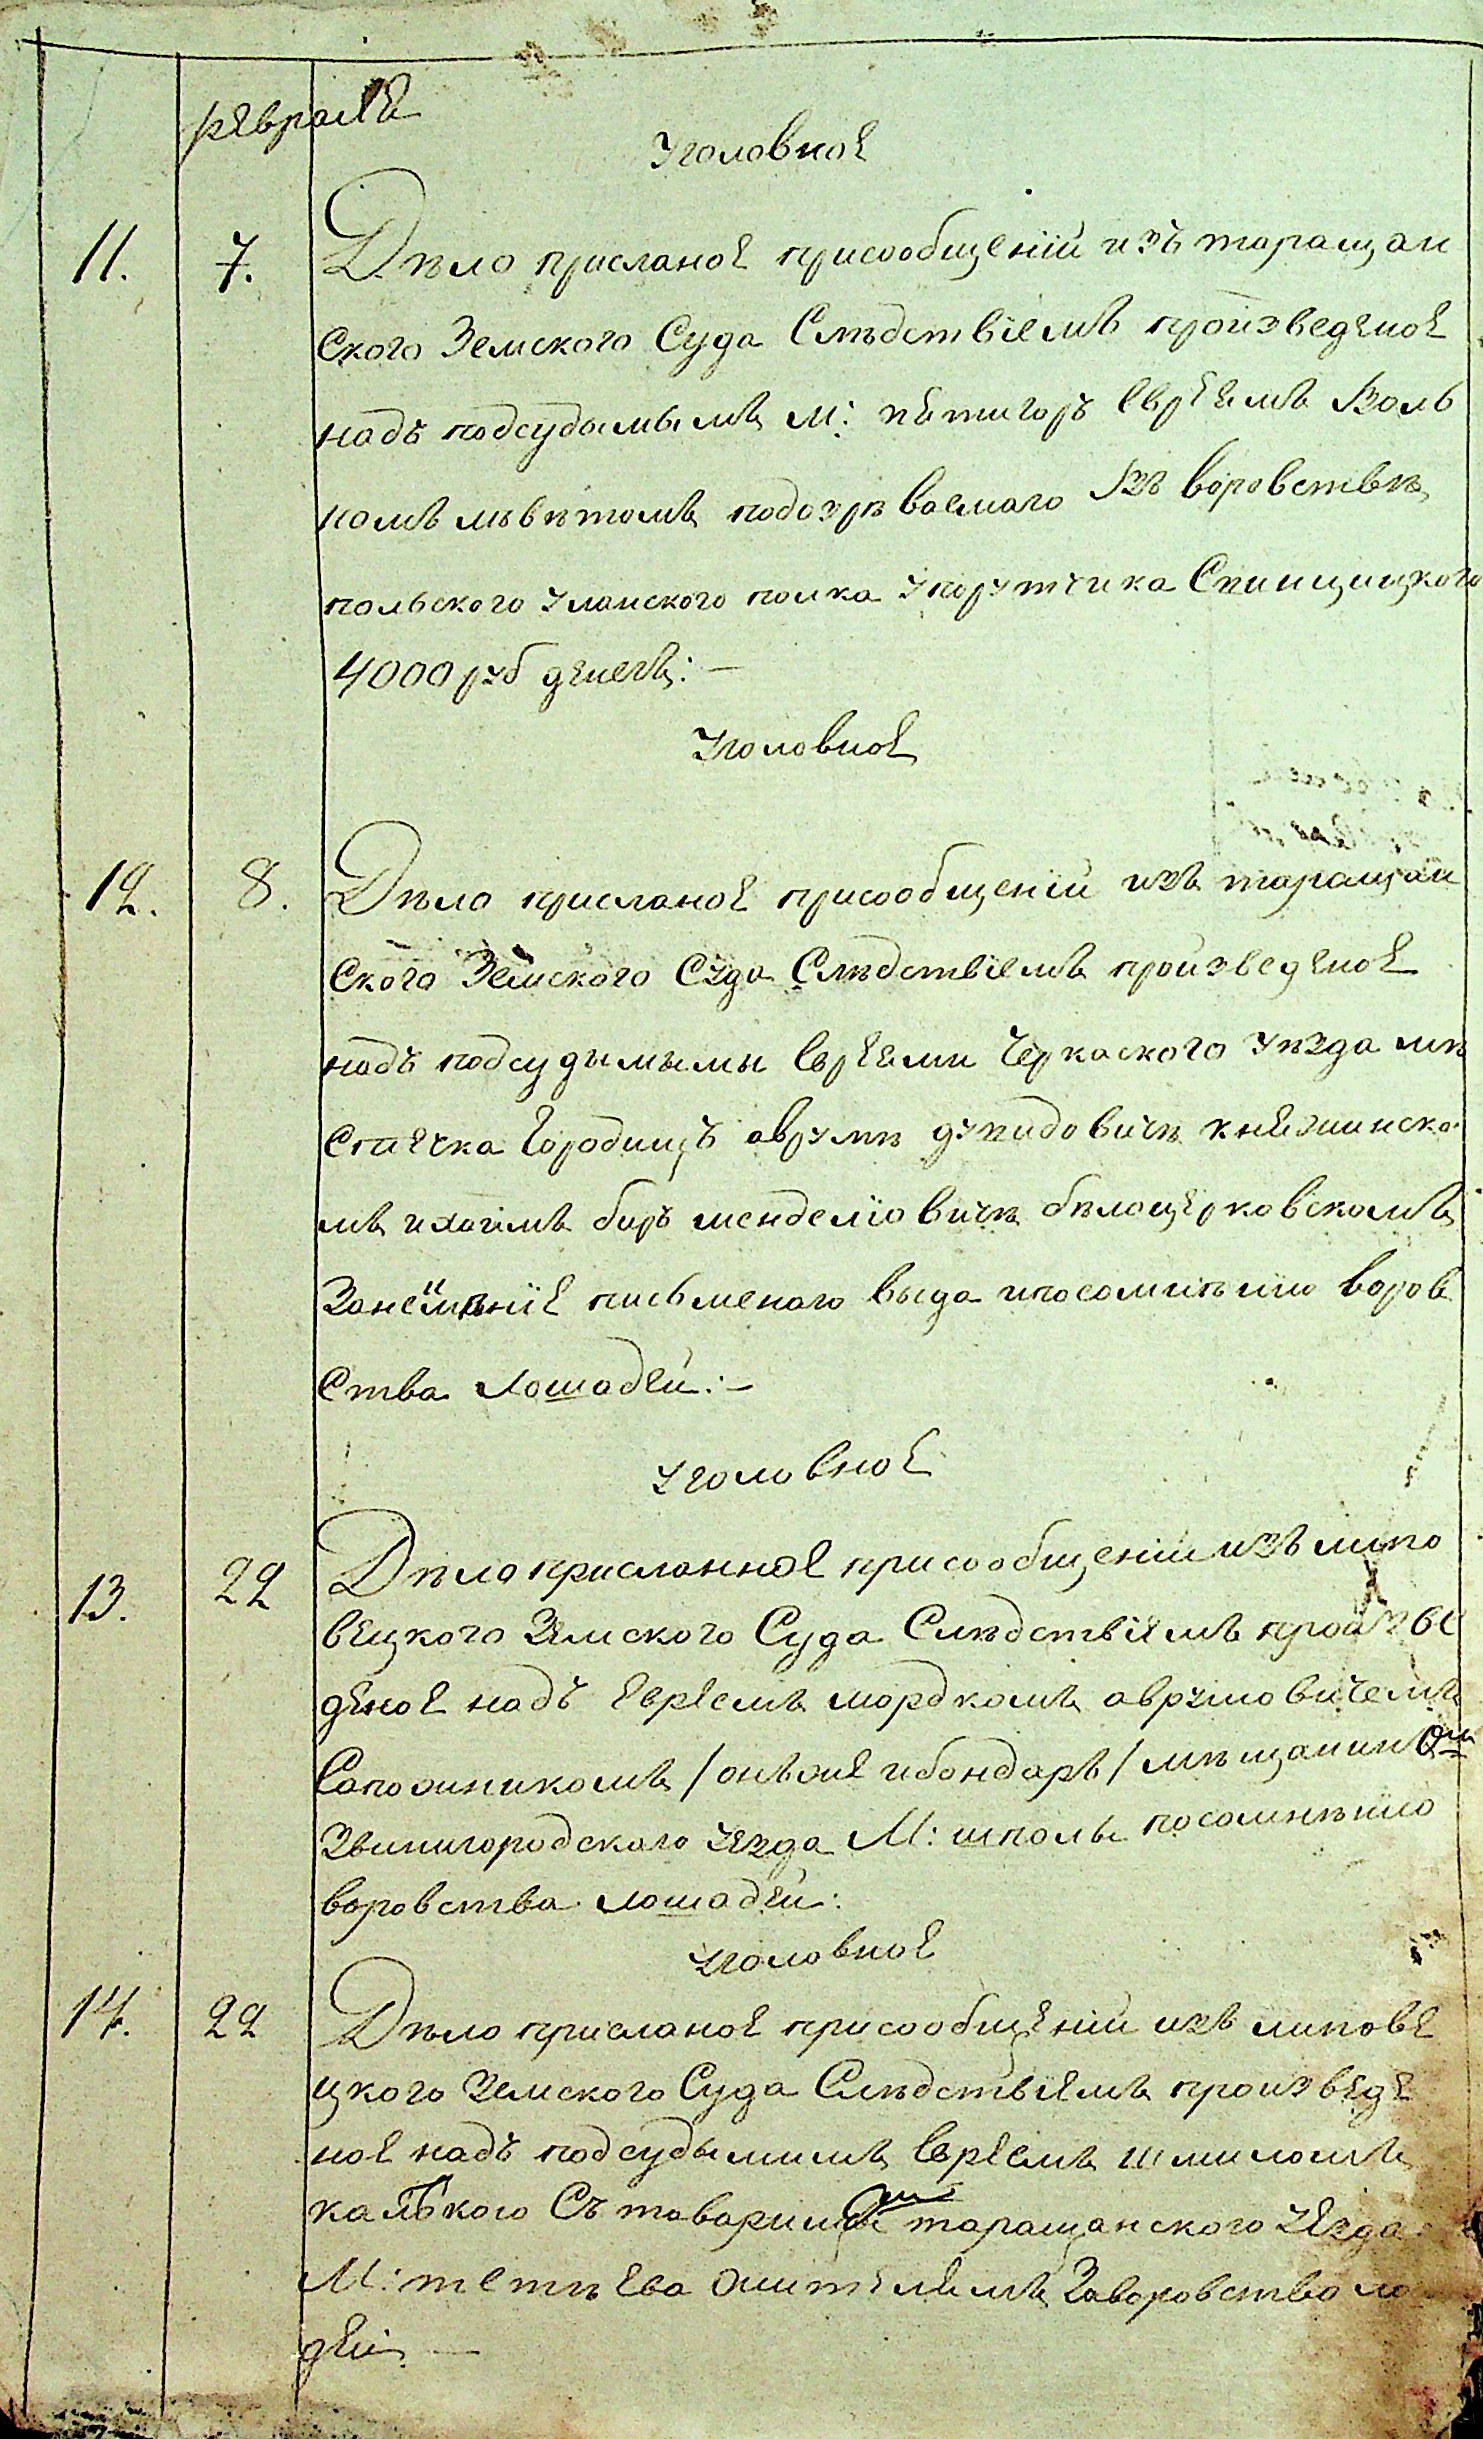 февраля
Уголовное
11. 7. Дѣло присланое присообщеніи изъ таращан
ского Земского Суда Слѣдствіемъ произведеное
надъ подсудымымъ м: пятигоръ Евреемъ Воль
комъ подозрѣваемаго въ воровствѣ
польского уланского полка упорутчика
4000 руб денегъ: —
Уголовное
12. 8. Дѣло присланое присообщеніи изъ таращан
ского Земского Суда Слѣдствіемъ произведеное
надъ подсудымымы Евреями Черкаского уѣзда мѣ
стечка Городищъ аврумѣ княжинско
мъ ихаимъ беръ менделіовичѣ бѣлоцерковскомъ
письменого выда ипосомнѣнію воров
ства лошадей: —
уголовное
13. 22 Дѣло присланное присообщеніи изъ липо
вецкого Земского Суда Слѣдствіемъ произве
деное надъ евреемъ мордкомъ аврумовичемъ
Сапожникомъ / онъже ибондаръ / мѣщанином
Звинигородского уезда М: шполы посомнѣнію
воровства лошадей:
уголовное
14. 22 Дѣло присланое присообщеніи изъ липове
цкого Земского Суда Слѣдствіемъ произведе
ное надъ подсудымимъ Евреемъ шмиломъ
Съ таращанского уезда
М: тетѣева жителямъ Заворовство ло
дей —